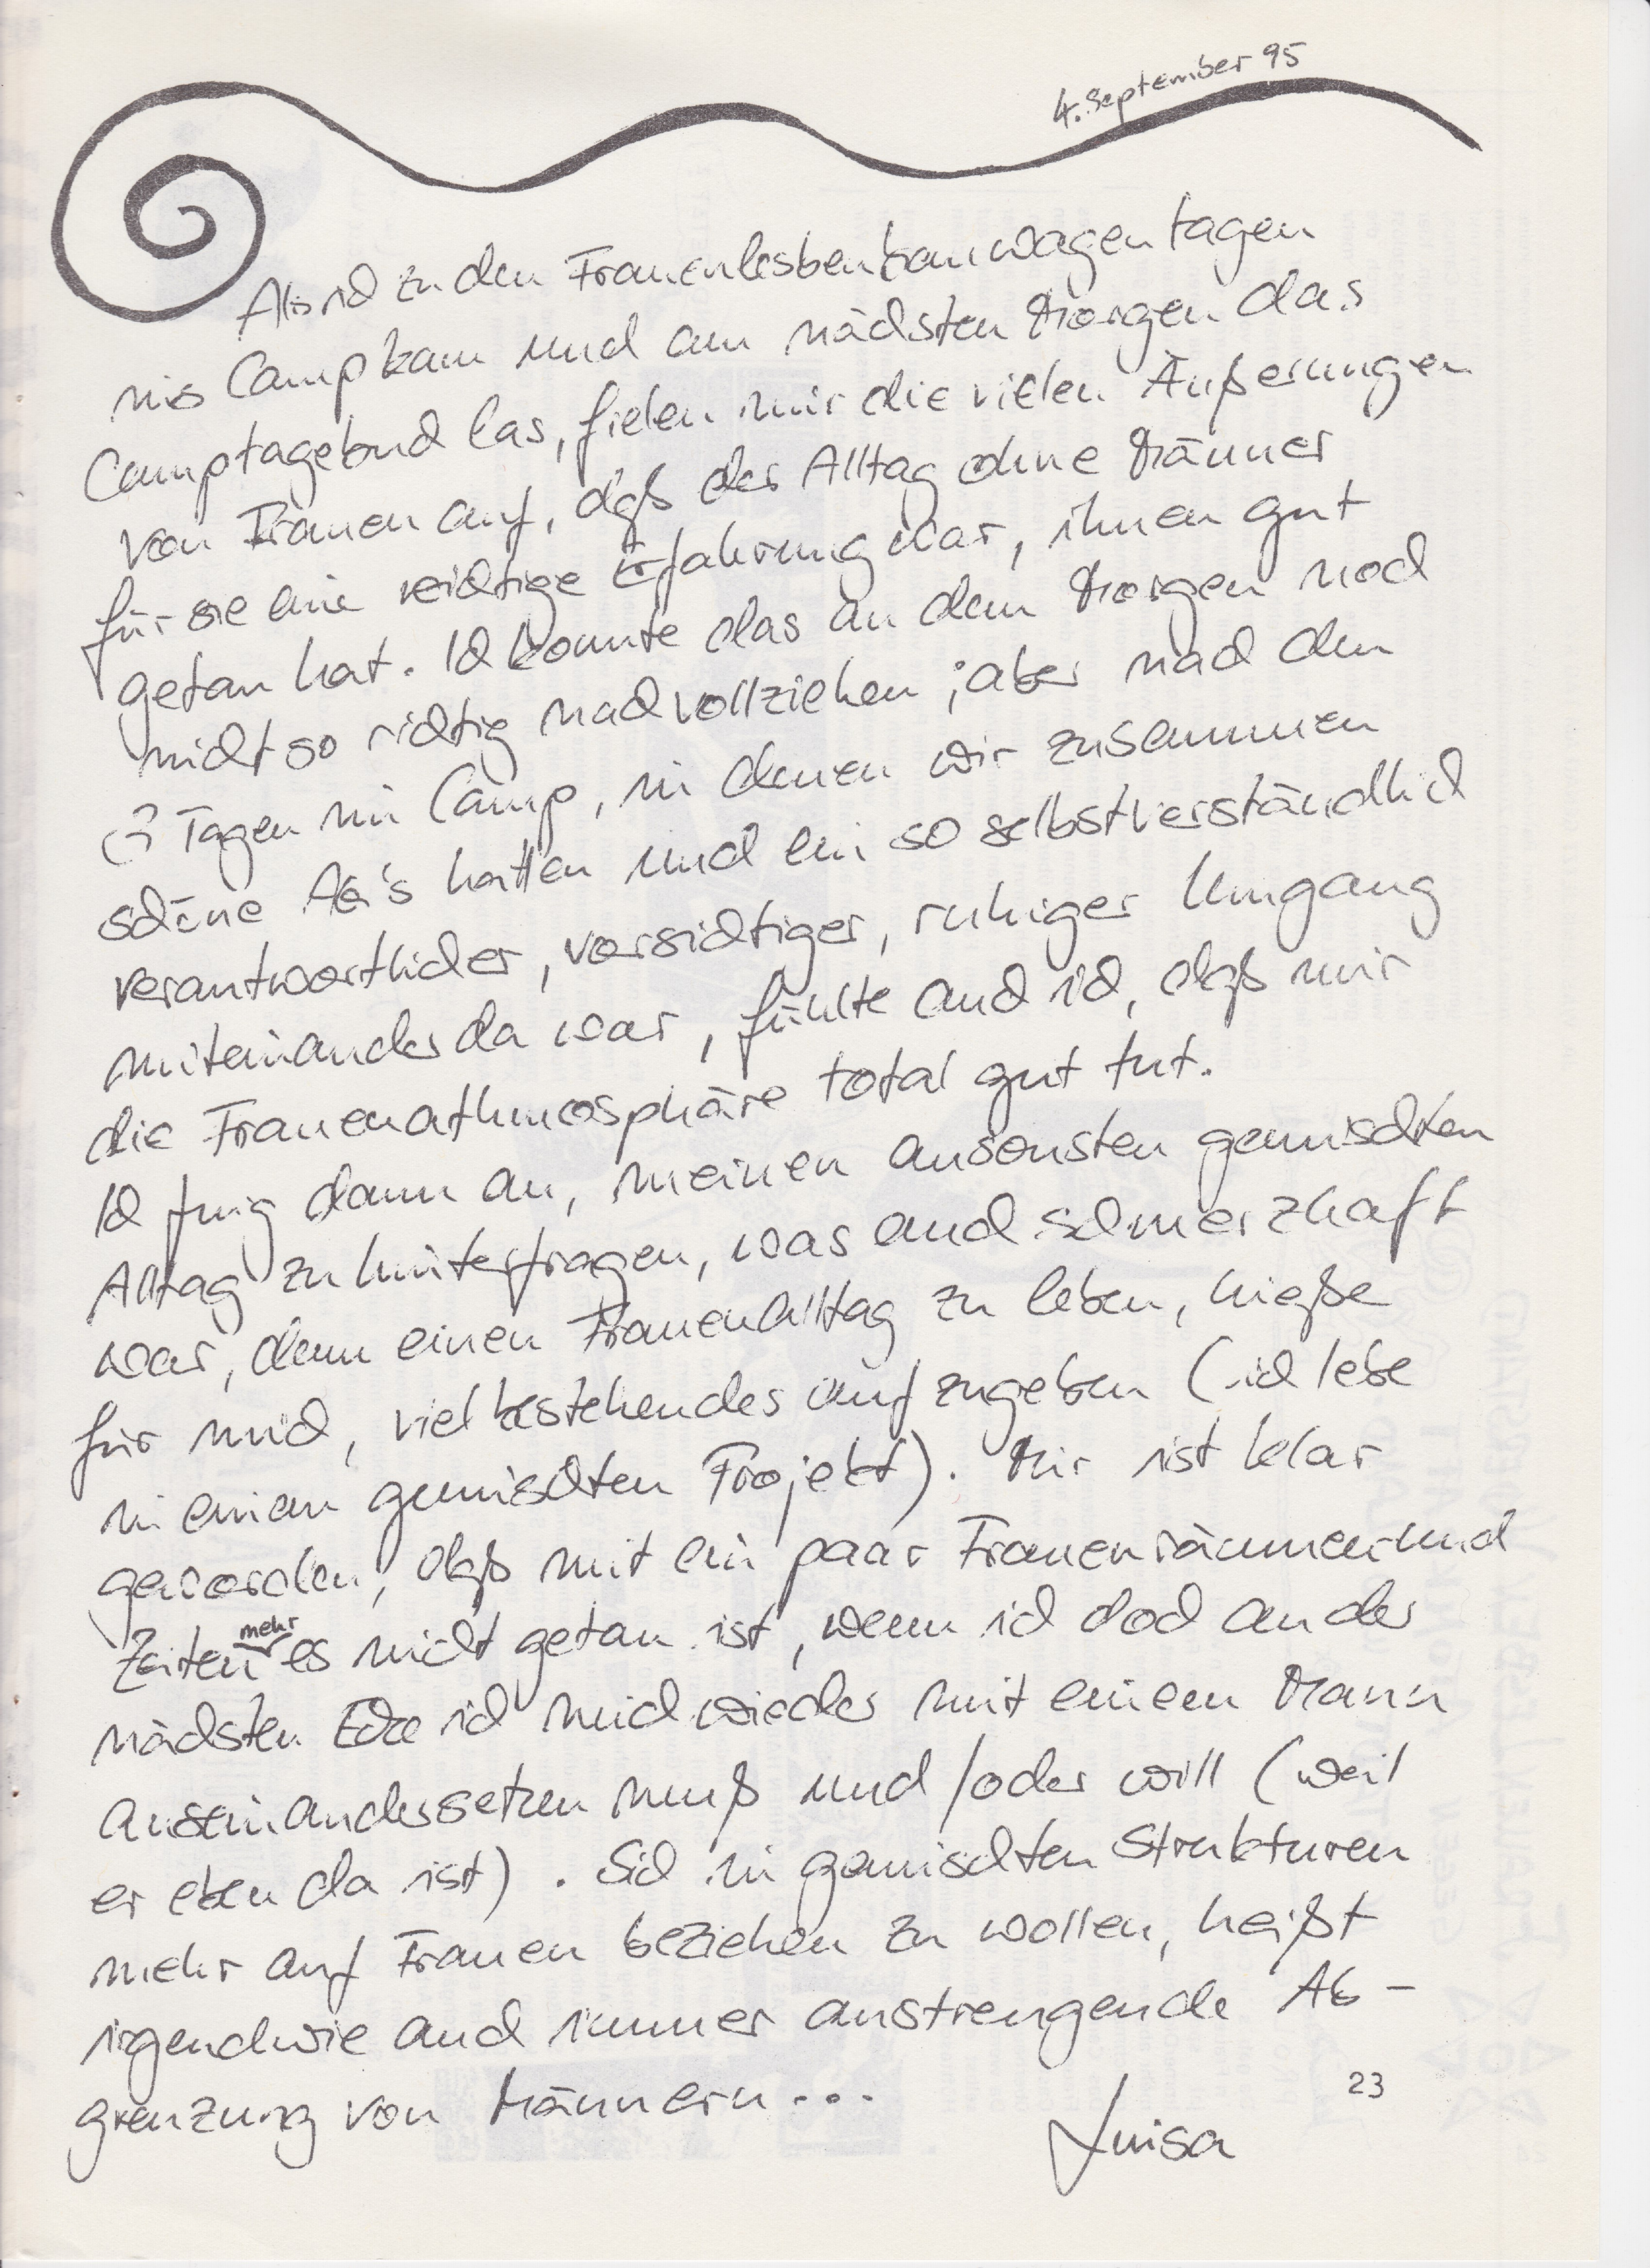 4. September 95
Als ich zu den Frauenlesbenbauwagentagen
ins Camp kam und am nächsten Morgen das
Camptagebuch las, fielen mir die vielen Äußerungen
von Frauen auf, daß der Alltag ohne Männer
für sie eine wichtige Erfahrung war, ihnen gut
getan hat. Ich konnte das an dem Morgen noch
nicht so richtig nachvollziehen; aber nach den
3 Tagen im Camp, in denen wir zusammen
schöne AG's hatten und ein so selbstverständlich
verantwortlicher, vorsichtiger, ruhiger Umgang
miteinander da war, fühlte auch ich, daß mir
die Frauenathmosphäre total gut tut.
Ich fing dann an, meinen ansonsten gemischten
Alltag zu hinterfragen, was auch schmerzhaft
war, denn einen Frauenalltag zu leben, hieße
für mich, viel bestehendes aufzugeben (ich lebe
in einem gemischten Projekt). Mir ist klar
geworden, daß mit ein paar Frauenräumen und
Zeiten mehr es nicht getan ist, wenn ich doch an der
nächsten Ecke ich mich wieder mit einem Mann
auseinandersetzen muß und/oder will (weil
er eben da ist). Sich in gemischten Strukturen
mehr auf Frauen beziehen zu wollen, heißt
irgendwie auch immer anstrengende Ab-
grenzung von Männern...
Luisa
23